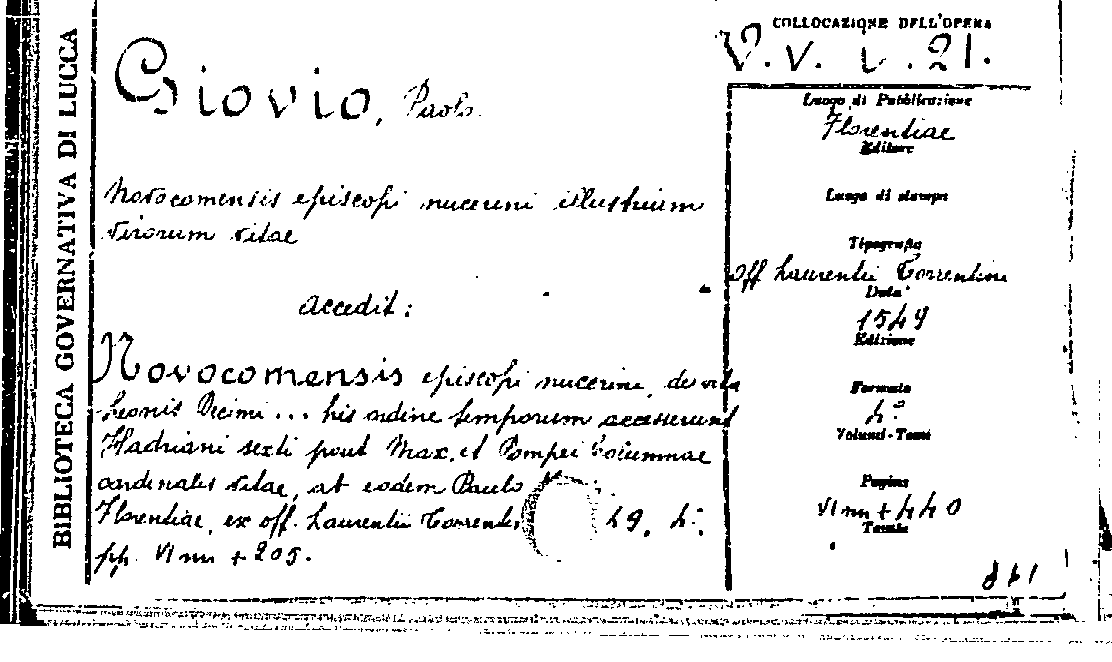 BIBLIOTECA GOVERNATIVA DI LUCCA
Giovio, Paolo.
Novocomensis episcopi nucerini illustrium
virorum vitae
Accedit:
Novocomensis episcopi nucerini, de vita
Leonis Decimi... his ordine temporum accesserunt
Hadriani sexti pont Max. et Pompei Columnae
cardinales vitae, at eodem Paulo
Florentiae, ex off. Laurentii Torrenti 49. 4°
pp. VI nn + 205.
COLLOCAZIONE DELL'OPERA
V. V. i. 21.
Luogo di Pubblicazione
Florentiae
Editore
Luogo di stampa
Tipografia
Off Laurentii Torrentini
Data
1549
Edizione
Formato
4°
Volumi-Tomi
Pagine
VI nn + 440
Tavole